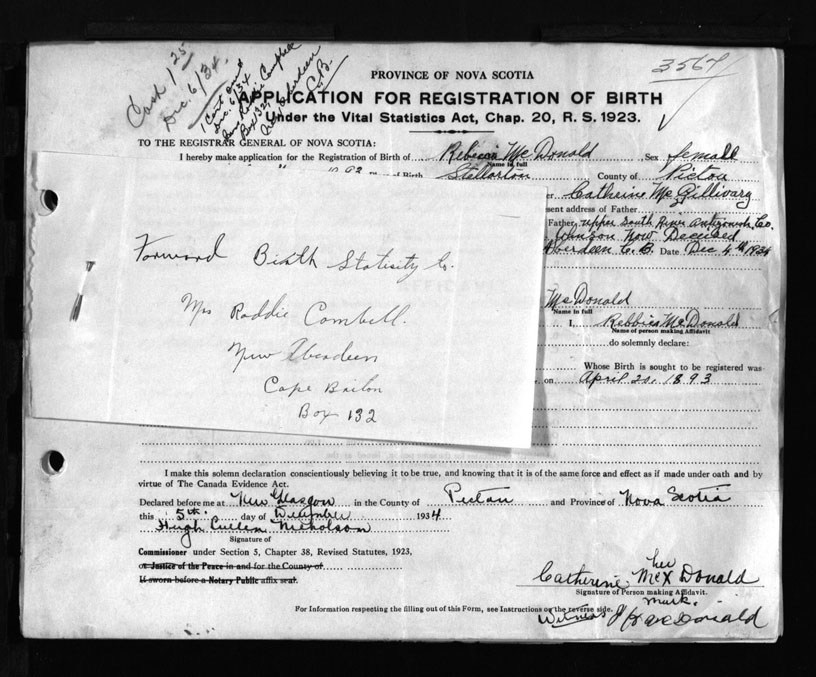 3564
Cash 1 25
Dec. 6/34.
1 Cert
Dec. 6/34
Mrs Roddie Campbell
Box 132
New Aberdeen
C.B.
PROVINCE OF NOVA SCOTIA
APPLICATION FOR REGISTRATION OF BIRTH
Under the Vital Statistics Act, Chap. 20, R. S. 1923.
TO THE REGISTRAR GENERAL OF NOVA SCOTIA:
I hereby make application for the Registration of Birth of Rebicca McDonald Sex female
Name in full
Birth Stellarton County of Pictou
Catherine McGillivary
sent address of Father
Father upper South River Antigonish Co.
Johnson Now Decised
Aberdeen C. B. Date Dec 4th 1934
Forward Birth Statisity Co.
Mrs Roddie Combell.
New Aberdeen
Cape Briton
Box 132
McDonald
Name in full
I, Rebbica McDonald
Name of person making Affidavit
do solemnly declare:
Whose Birth is sought to be registered was
on April 20, 1893
I make this solemn declaration conscientiously believing it to be true, and knowing that it is of the same force and effect as if made under oath and by
virtue of The Canada Evidence Act.
Declared before me at New Glasgow in the County of Pictou and Province of Nova Scotia
this 5th. day of December 1934
Hugh Cullen Nicholson
Signature of
Commissioner under Section 5, Chapter 38, Revised Statutes, 1923,
or Justice of the Peace in and for the County of
If sworn before a Notary Public affix seal.
her
Catherine McX Donald
Signature of Person making Affidavit.
mark.
For Information respecting the filling out of this Form, see Instructions on the reverse side.
Witness J McDonald